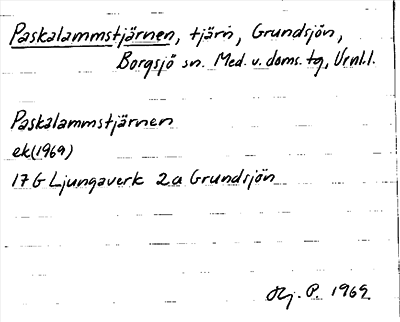 Paskalammstjärnen, tjärn, Grundsjön,
Borgsjö sn. Med. v. doms. tg, Vrnl.l.
Paskalammstjärnen
ek(1969)
17 G Ljungaverk 2a Grundsjön
Hj. P. 1969